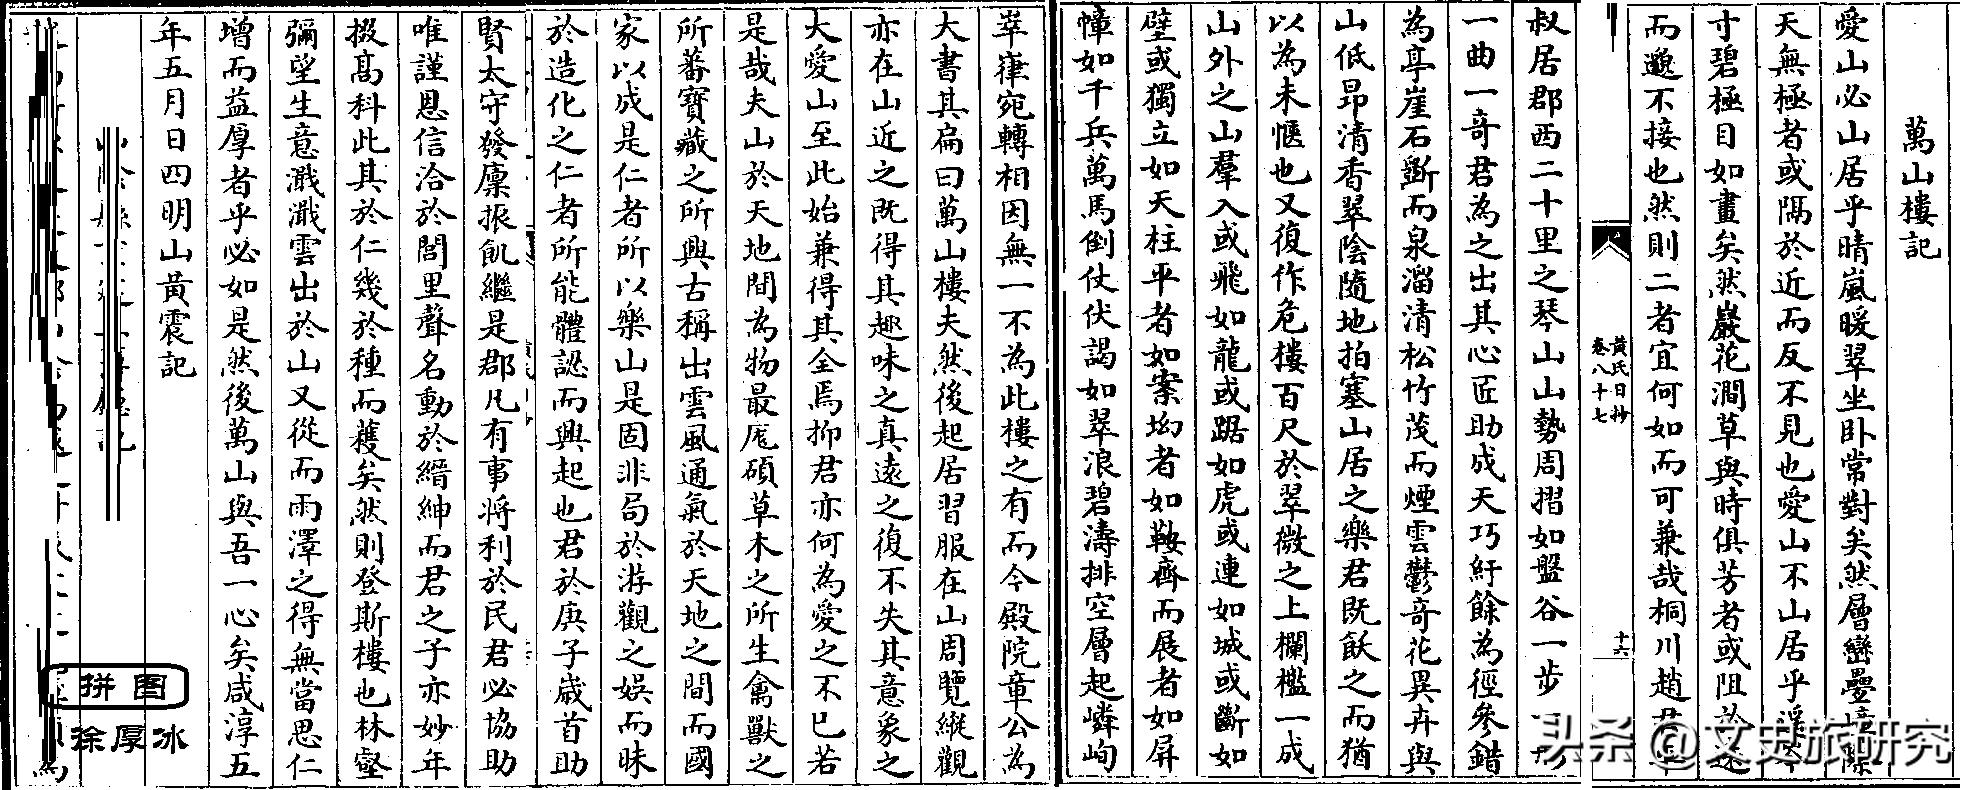 萬山樓記
愛山必山居乎晴嵐暖翠坐卧常對矣然層巒疊
天無極者或隔於近而反不見也愛山不山居乎
寸碧極目如畫矣然巖花澗草與時俱芳者或阻於
而邈不接也然則二者宜何如而可兼哉桐川趙
黃氏日抄
卷八十七
十六
叔居郡西二十里之琴山山勢周摺如盤谷一步
一曲一奇君為之出其心匠助成天巧紆餘為徑參錯
為亭崖石斷而泉溜清松竹茂而煙雲鬱奇花異卉與
山低昂清香翠陰隨地拍塞山居之樂君既飫之而猶
以為未愜也又復作危樓百尺於翠微之上欄檻一成
山外之山羣入或飛如龍或踞如虎或連如城或斷如
壁或獨立如天柱平者如案坳者如鞍齊而展者如屏
幛如千兵萬馬倒仗伏謁如翠浪碧濤排空層起嶙峋
崒嵂宛轉相因無一不為此樓之有而今殿院章公為
大書其扁曰萬山樓夫然後起居習服在山周覽縱觀
亦在山近之既得其趣味之真遠之復不失其意象之
大愛山至此始兼得其全焉抑君亦何為愛之不已若
是哉夫山於天地間為物最厖碩草木之所生禽獸之
所蕃寶藏之所興古稱出雲風通氣於天地之間而國
家以成是仁者所以樂山是固非局於游觀之娱而昧
於造化之仁者所能體認而興起也君於庚子歲首助
賢太守發廪振飢繼是郡凡有事將利於民君必協助
唯謹恩信洽於閭里聲名動於縉紳而君之子亦妙年
掇髙科此其於仁幾於種而蓺矣然則登斯樓也林壑
彌望生意濈濈雲出於山又從而雨澤之得無當思仁
增而益厚者乎必如是然後萬山與吾一心矣咸淳五
年五月日四明山黃震記
拼图
涂厚冰
头条@文史旅研究